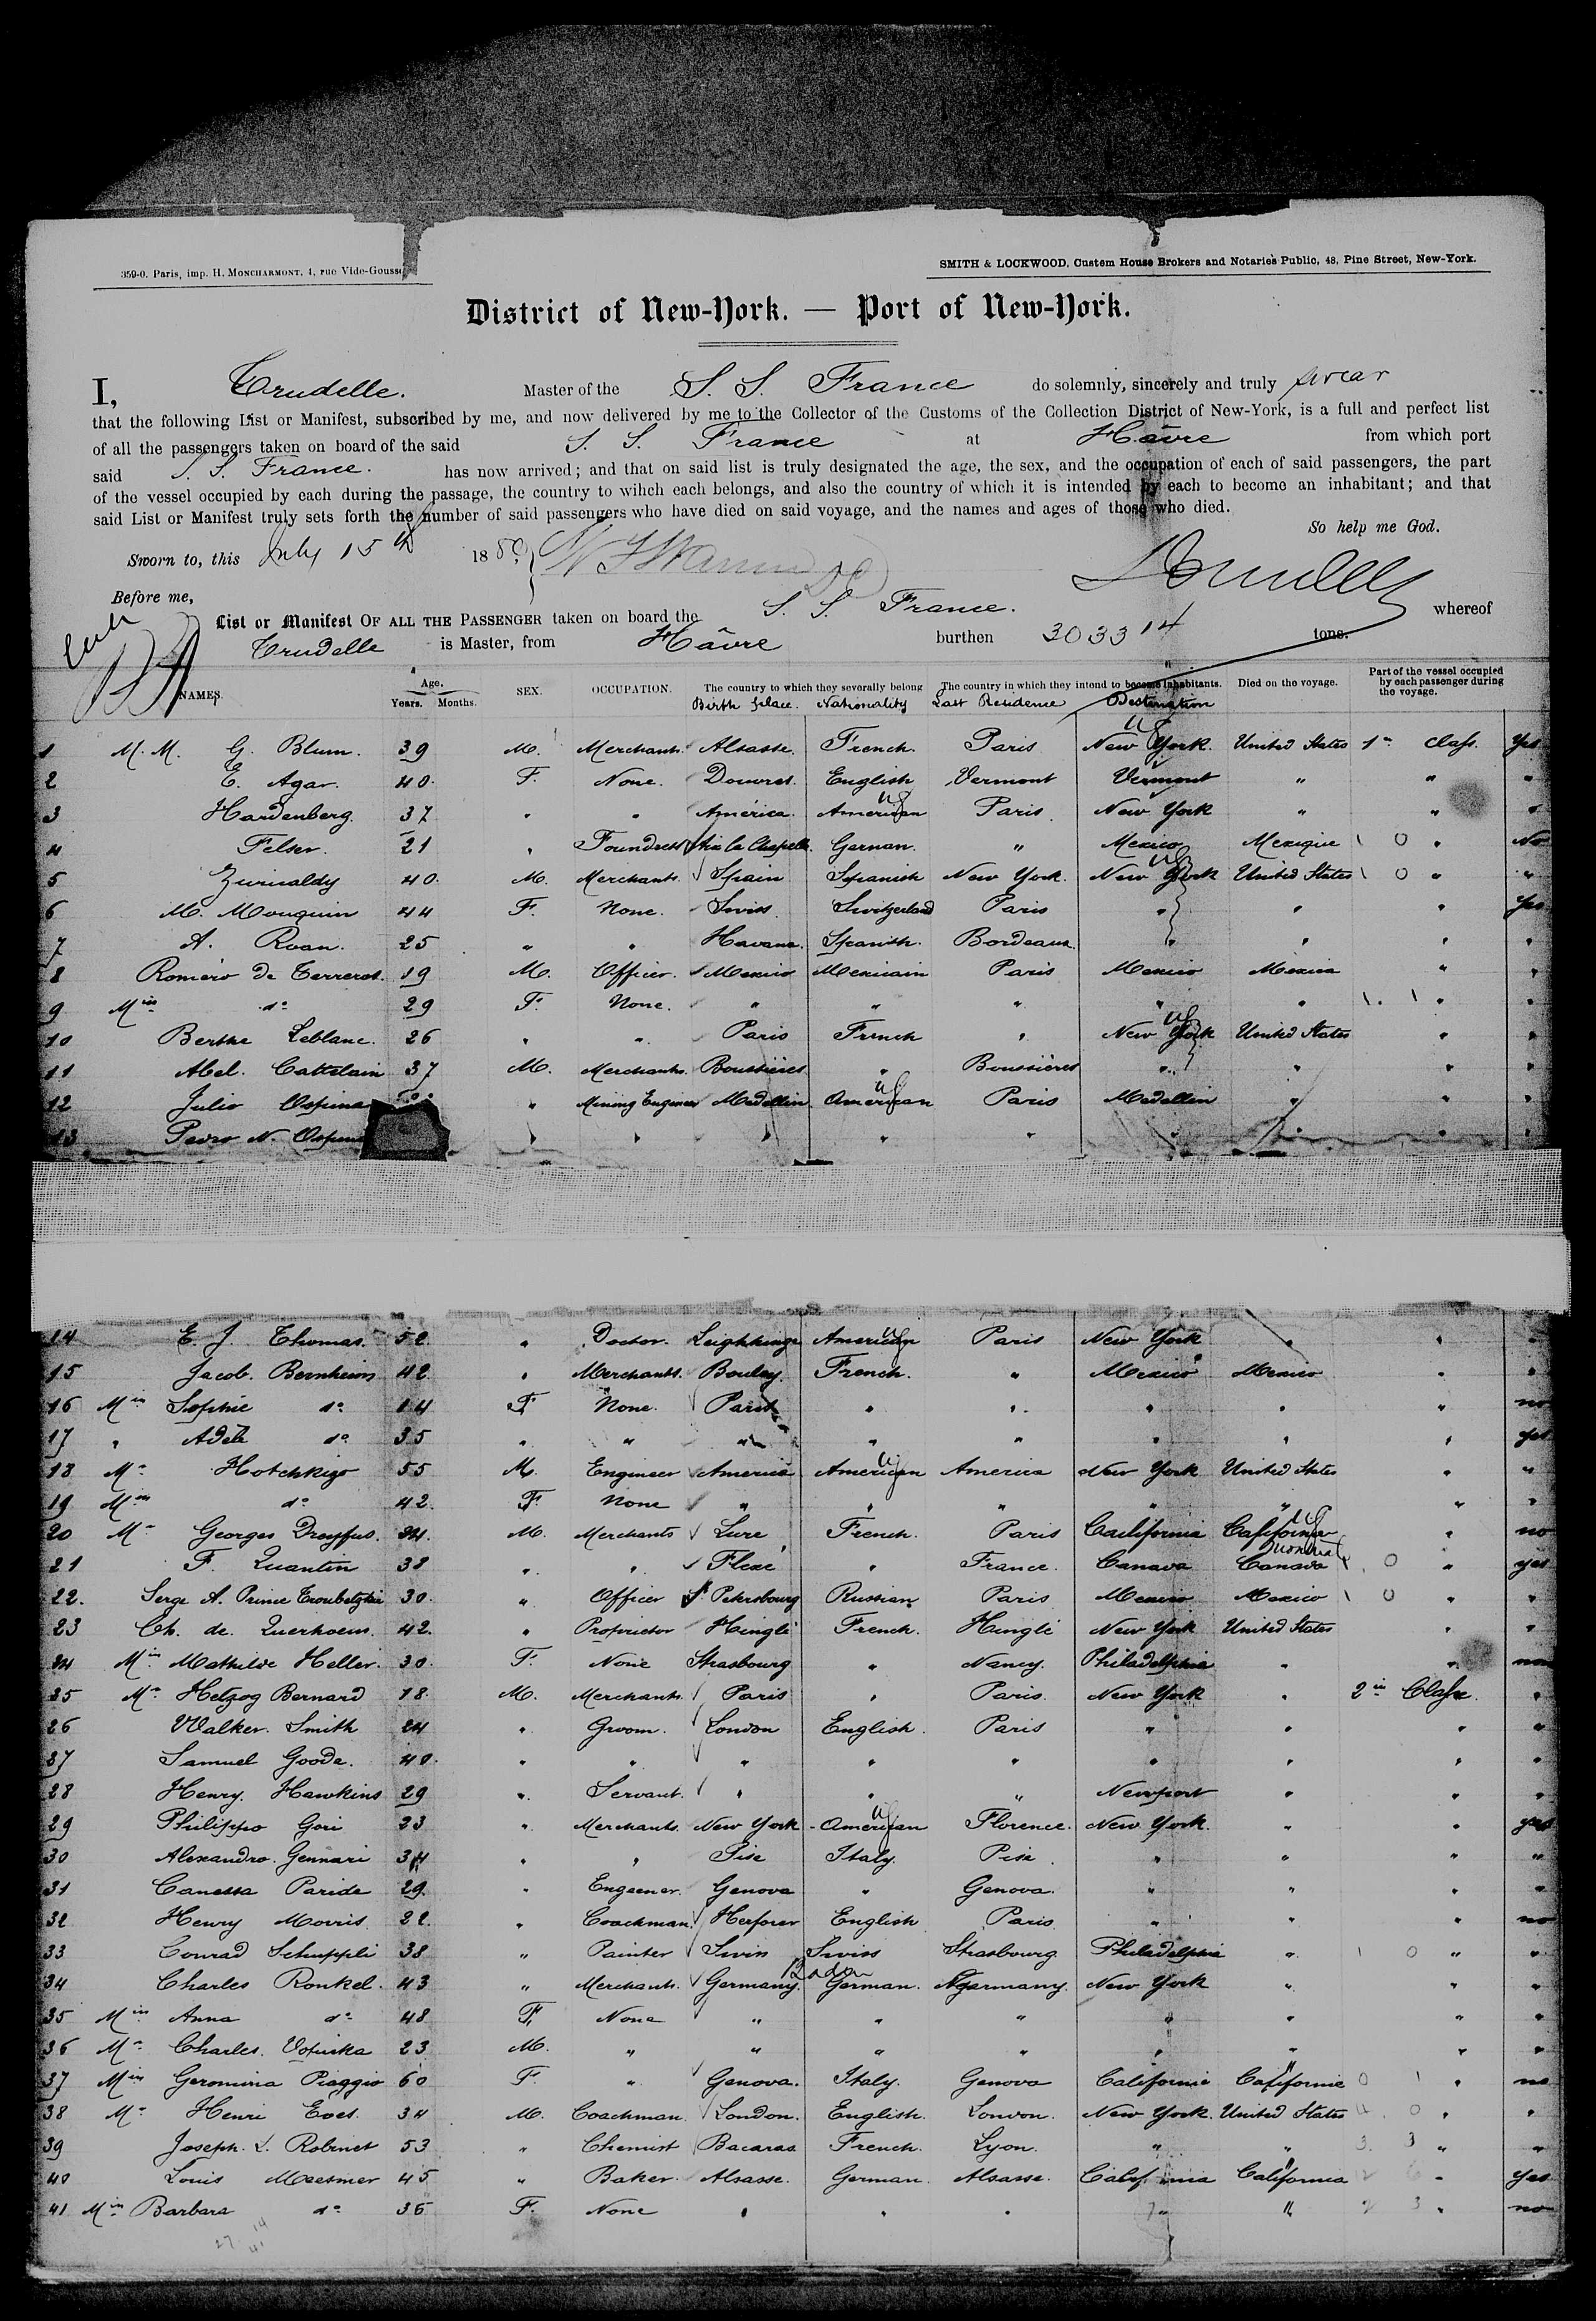 359-0. Paris, imp. H. MONCHARMONT, 1, rue Vide-Gousse
SMITH & LOCKWOOD, Custom House Brokers and Notaries Public, 48, Pine Street, New-York.
District of New-York. — Port of New-York.
I, Trudelle. Master of the S. S. France do solemnly, sincerely and truly swear
that the following List or Manifest, subscribed by me, and now delivered by me to the Collector of the Customs of the Collection District of New-York, is a full and perfect list
of all the passengers taken on board of the said S. S. France at Hâvre from which port
said S. S. France. has now arrived; and that on said list is truly designated the age, the sex, and the occupation of each of said passengers, the part
of the vessel occupied by each during the passage, the country to wihch each belongs, and also the country of which it is intended by each to become an inhabitant; and that
said List or Manifest truly sets forth the number of said passengers who have died on said voyage, and the names and ages of those who died.
So help me God.
Sworn to, this July 15th 1880
Before me,
Trudelle
List or Manifest OF ALL THE PASSENGER taken on board the S. S. France. whereof
Trudelle is Master, from Hâvre burthen 3033 14 tons.
NAMES. Age. Years. Months. SEX. OCCUPATION. The country to which they severally belong The country in which they intend to become inhabitants. Died on the voyage. Part of the vessel occupied by each passenger during the voyage.
Birth place. Nationality Last Residence Destination
1 M. M. G. Blum. 39 M. Merchant. Alsasse. French. Paris New York. United States 1re Class. Yes
2 E. Agar. 40. F. None. Douvres. English Vermont Vermont " " "
3 Hardenberg. 37 " " América. American Paris. New York " " "
4 Felser. 21 " Foundress Aix la Chapelle. German. " Mexico Mexique 1 0 " No
5 Zurnaldy 40. M. Merchants Spain Spanish New York. New York United States 1 0 " "
6 M. Mouquin 44 F. None. Swiss. Switzerland Paris " " " yes
7 A. Roan. 25 " " Havana. Spanish. Bordeaux. " " " "
8 Roméro de Terreros. 19 M. Officer. Mexico Mexicain Paris Mexico Mexico " "
9 Min do 29 F. None. " " " " " 1. 1 " "
10 Berthe Leblanc. 26 " " Paris French " New York United States " "
11 Abel. Cattelain 37 M. Merchants. Boussières " Boussières " " " "
12 Julio Ospina " Mining Engineer Medellin American Paris Medellin " " "
13 Pedro N. Ospina " " " " " " " " "
14 E. J. Thomas. 52. " Doctor. American Paris New York " " "
15 Jacob. Bernheim 42 " Merchants. Boulay. French. " Mexico Mexico " "
16 Min Sophie do 14 F None. Paris " " " " " no
17 " Adèle do 35 " " " " " " " " yes
18 Mr Hotchkiss 55 M. Engineer America American America New York United States " "
19 Min do 42. F None " " " " " " "
20 Mr Georges Dreyfus. 24. M. Merchants Lure French. Paris California California " no
21 F. Quantin 38 " " " France. Canada Canada 1. 0 " yes
22. Serge A. Prince Troubetzkoi 30. " Officer St Petersbourg Russian Paris Mexico Mexico 1 0 " "
23 Ch. de. Querhoens. 42. " Proprietor Hinglé French. Hinglé New York United States " "
24 Min Mathilde Heller. 30. F. None Strasbourg " Nancy. Philadelphia " " no
25 Mr Hetzog Bernard 18. M. Merchants. Paris " Paris. New York " 2in Class. "
26 Walker. Smith 24 " Groom. London English. Paris " " " "
27 Samuel Goode. 40. " " " " " " " " "
28 Henry. Hawkins 29 " Servant. " " " Newport " " "
29 Philippo Gori 23 " Merchants. New York American Florence. New York. " " yes
30 Alexandro. Gennari 34 " " Pise Italy. Pise. " " " "
31 Canessa Paride 29. " Engeener. Genova " Genova. " " " "
32 Henry Morris 22. " Coachman. English Paris. " " " no
33 Conrad Schuppli 38 " Painter Swiss Swiss Strasbourg Philadelphia " 1 0 " "
34 Charles Ronkel. 43 " Merchants. Germany. Baden German. Germany. New York " " "
35 Min Anna do 48 F. None " " " " " " "
36 Mr Charles. 23 M. " " " " " " " "
37 Min Geromina Piaggio 60 F. " Genova. Italy. Genova California California 0 1 " no
38 Mr Henri 34 M. Coachman London. English. London. New York. United States 4. 0 " "
39 Joseph. L. Robinet 53 " Chemist Bacaras French. Lyon. " " 3. 3 " "
40 Louis Meesmer 45. " Baker. Alsasse. German. Alsasse. California California " yes
41 Min Barbara do 36 F. None " " " " " 2 3 " no
27 14
41